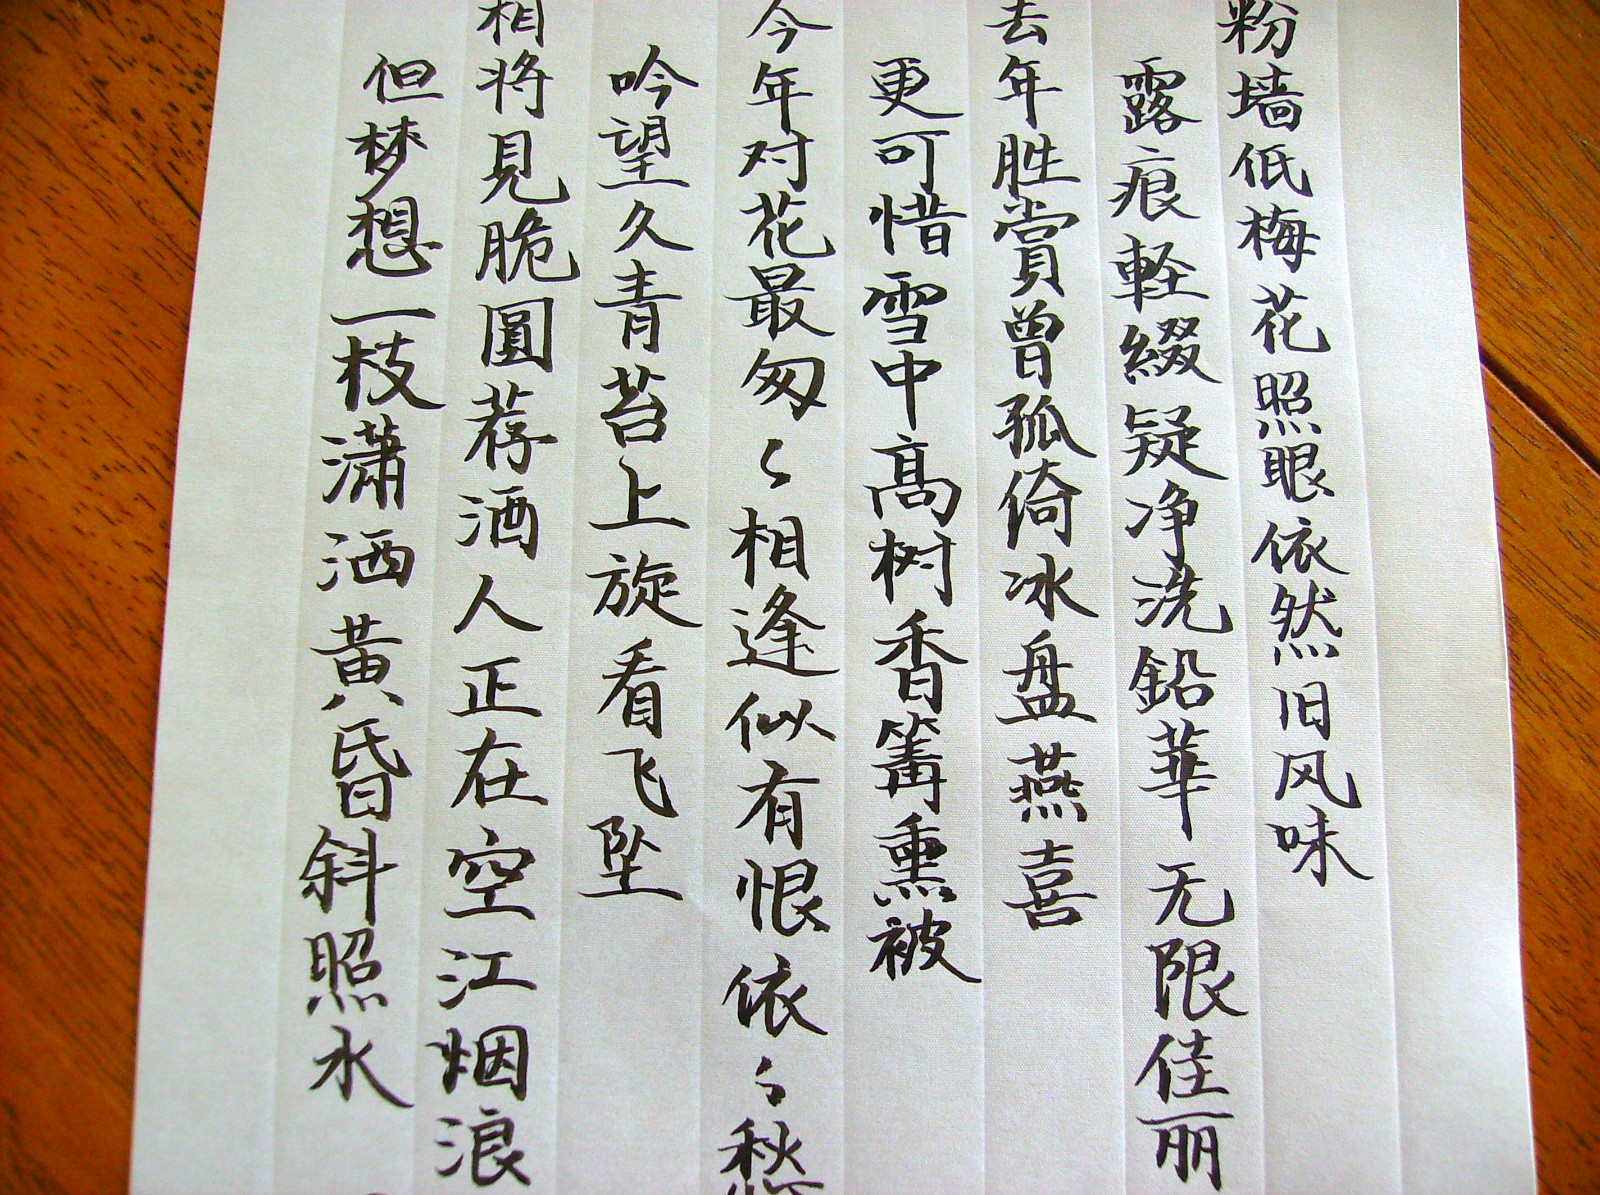 粉墙低梅花照眼依然旧风味
露痕軽綴疑净洗鉛華无限佳丽
去年胜賞曾孤倚冰盘燕喜
更可惜雪中高树香篝熏被
今年对花最匆々相逢似有恨依々愁
吟望久青苔上旋看飞坠
相将見脆圓荐酒人正在空江烟浪
但梦想一枝潇洒黄昏斜照水